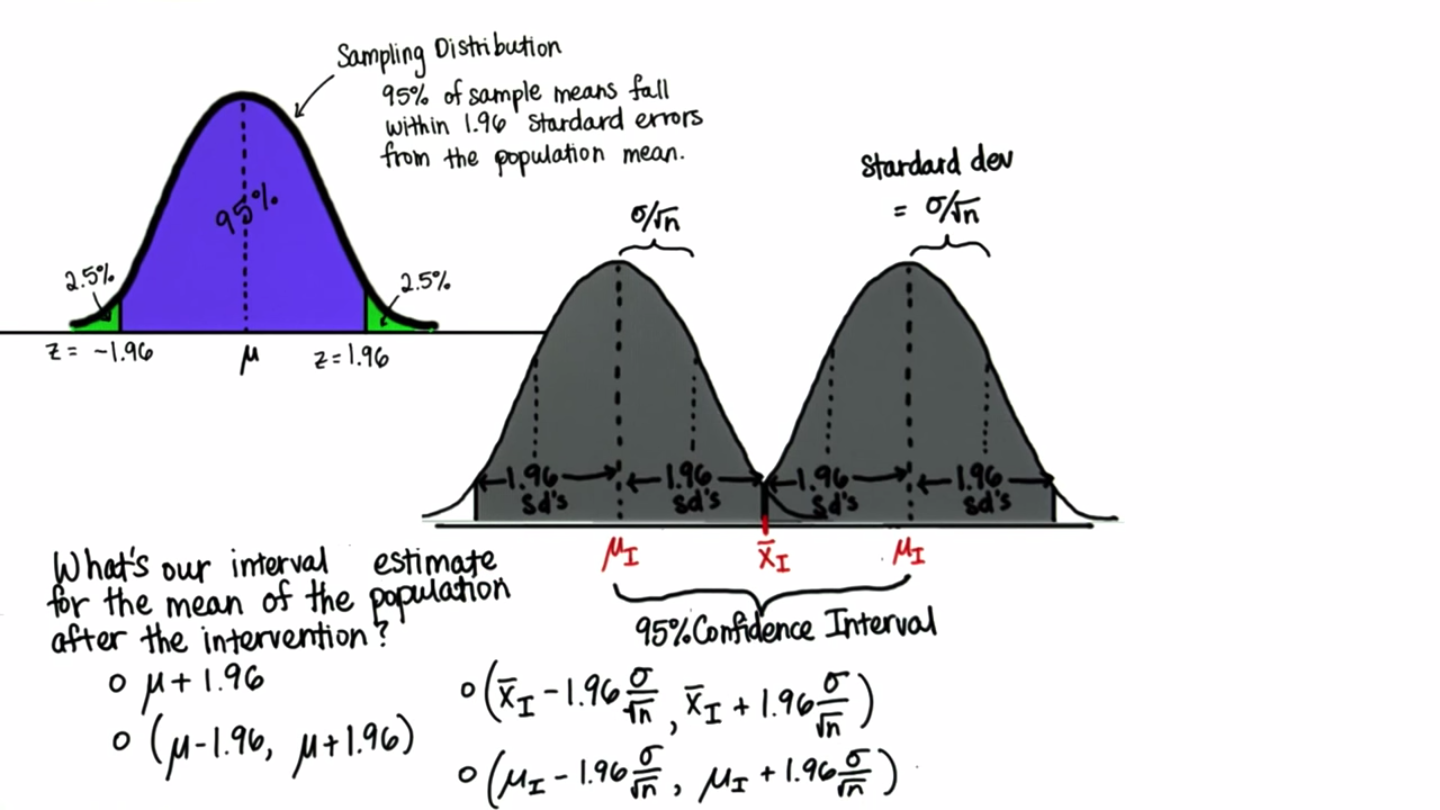 Sampling Distribution
95% of sample means fall
within 1.96 standard errors
from the population mean.
95%
2.5%
2.5%
z = -1.96
μ
z=1.96
σ/√n
standard dev
= σ/√n
1.96 sd's
1.96 sd's
1.96 sd's
1.96 sd's
μI
x̄I
μI
95% Confidence Interval
What's our interval estimate
for the mean of the population
after the intervention?
o μ + 1.96
o (μ-1.96, μ+1.96)
o (x̄I - 1.96 σ/√n, x̄I + 1.96 σ/√n)
o (μI - 1.96 σ/√n, μI + 1.96 σ/√n)